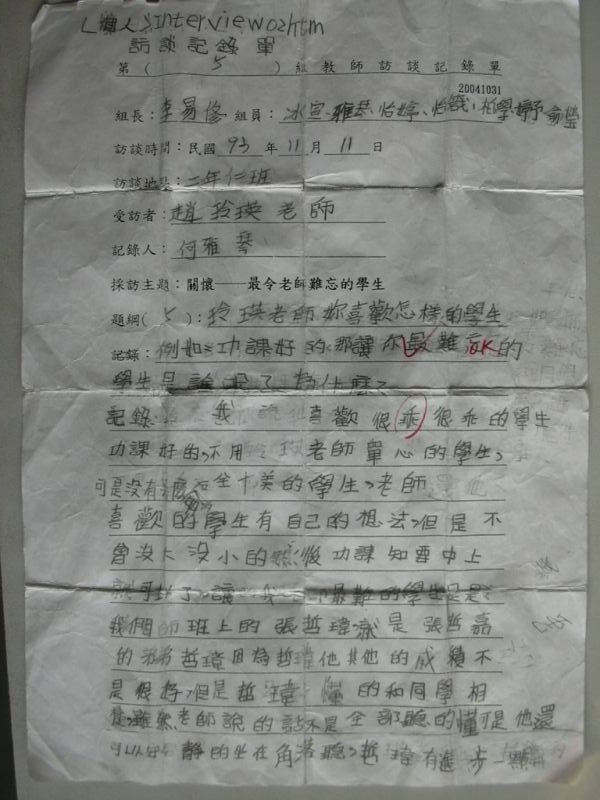 Interview02htm
訪談記錄單
第( 5 )組教師訪談記錄單
20041031
組長:李易修 組員:冰宣、雅琴、怡婷、怡
訪談時間:民國 93 年 11 月 11 日
訪談地點:二年仁班
受訪者:趙玲瑛老師
記錄人:何雅琴
採訪主題:關懷——最令老師難忘的學生
題綱( 5 ):玲瑛老師妳喜歡怎樣的學生
記錄:例如:功課好的,那讓你最難忘的
學生是誰呢?為什麼?
記錄: 我 喜歡很乖很乖的學生
功課好的,不用 老師單心的學生,
可是沒有 十全十美的學生,老師
喜歡的學生有自己的想法,但是不
會沒大沒小的,然後功課 中上
就可以了,讓我 最難 的學生是
我們 班上的張哲瑋,就是張哲嘉
的弟弟哲瑋因為哲瑋他其他的成績不
是很好,但是哲瑋 懂的和同學相
處,雖然老師說的話不是全部聽的懂可是他還
可以安靜的坐在角落聽,哲瑋有進步一點